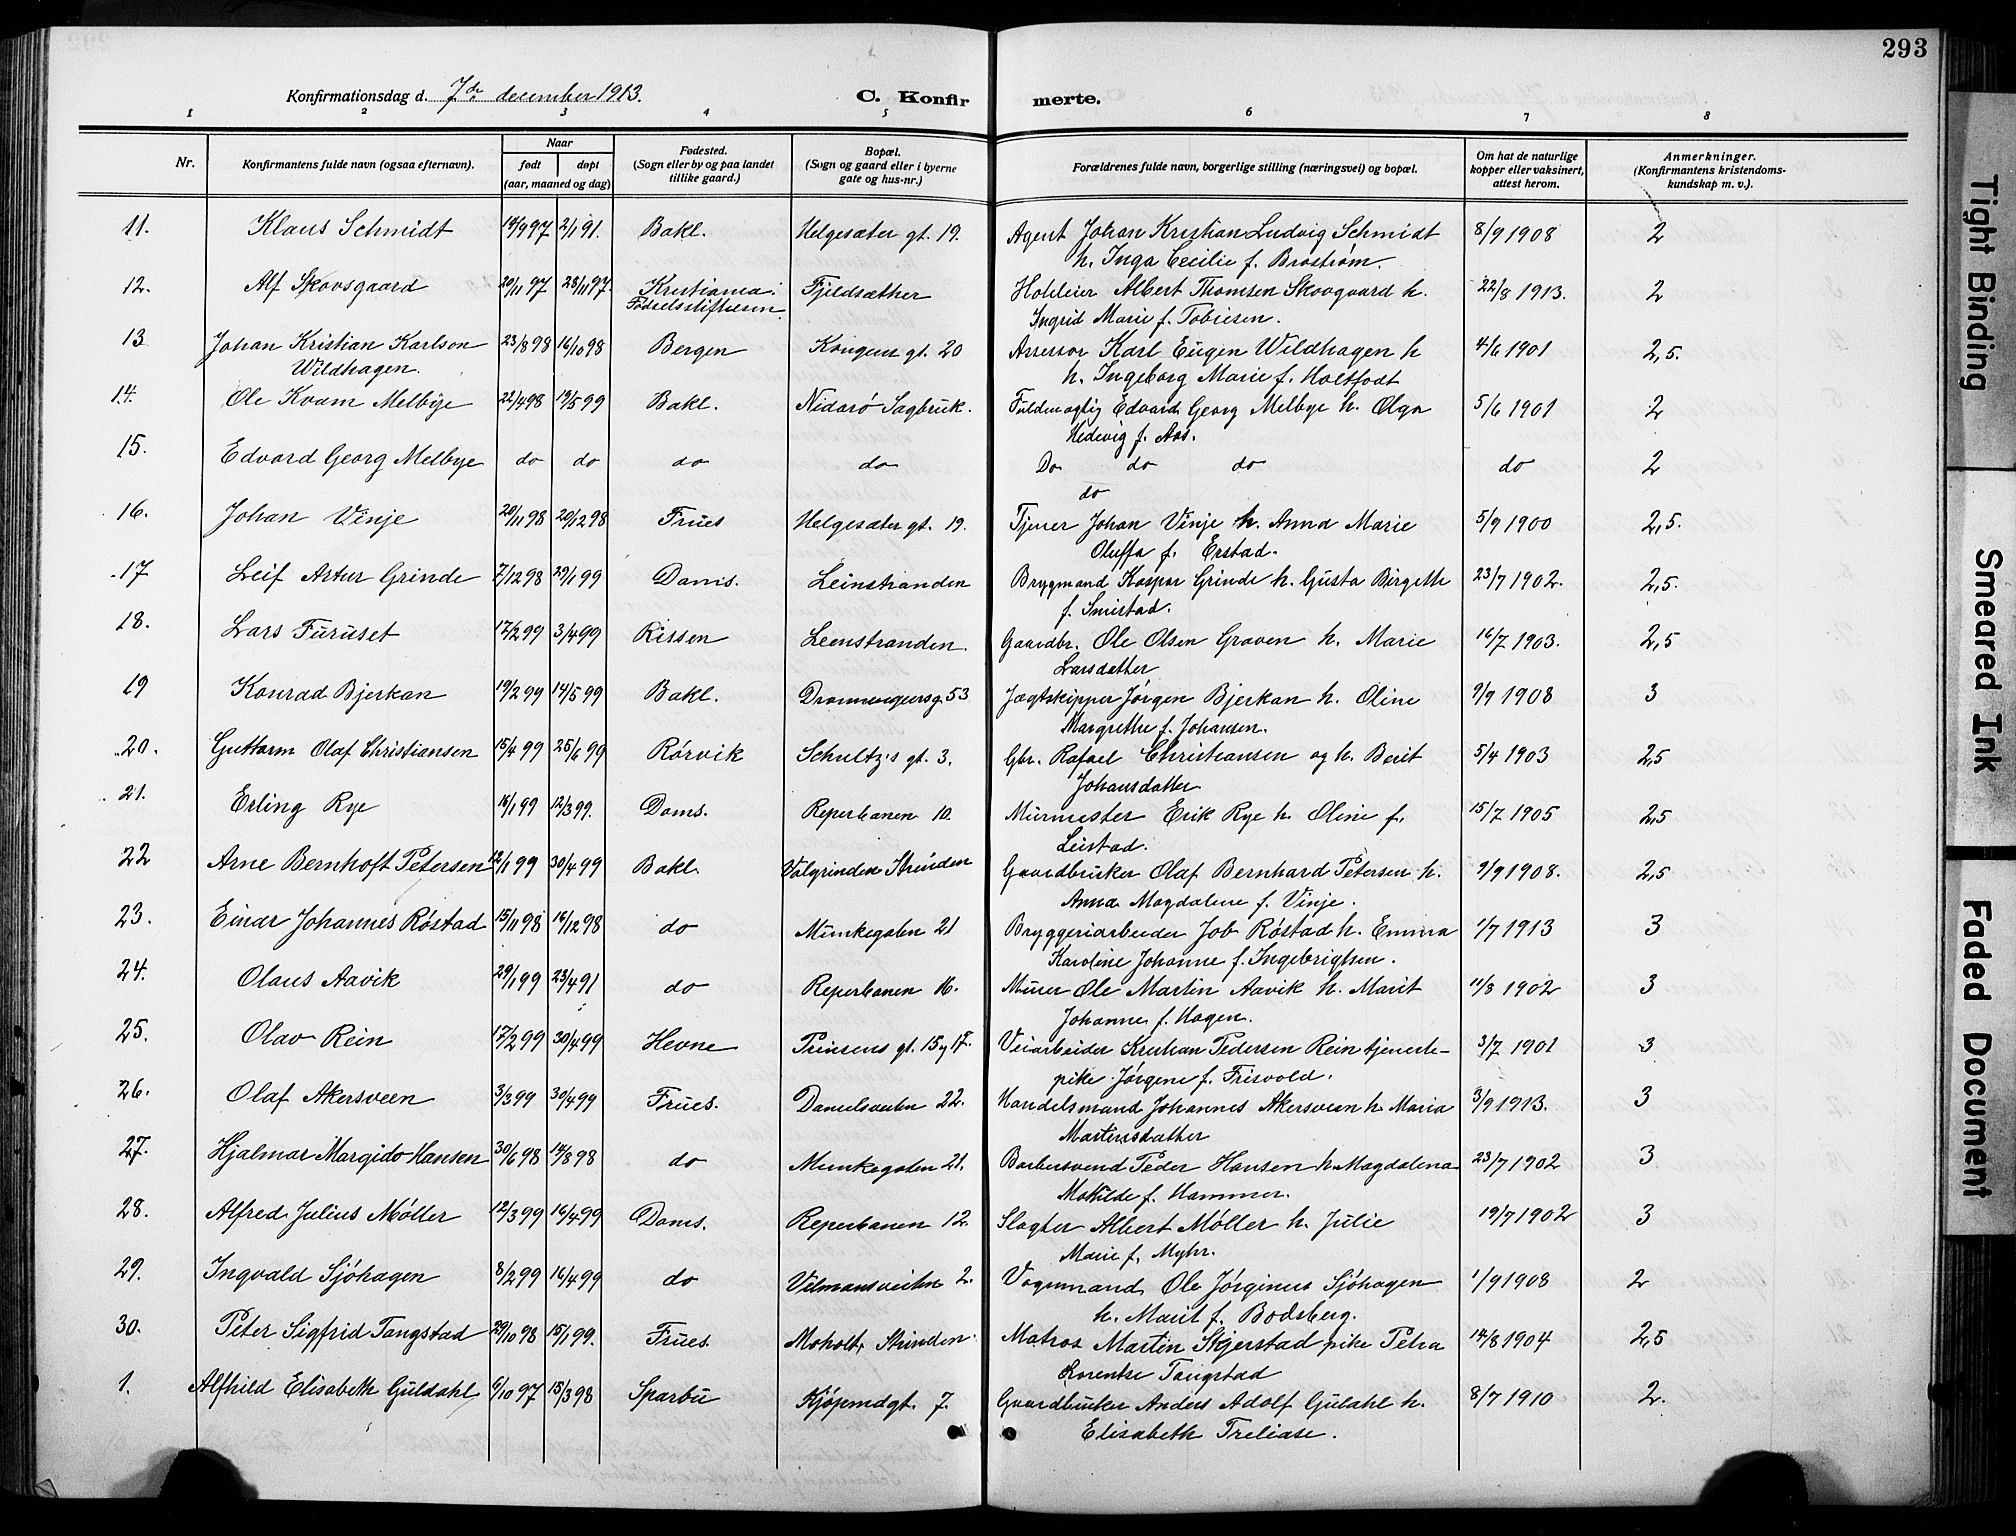 293
Konfirmationsdag d. 7de december 1913.
C. Konfirmerte.
1 2 3 4 5 6 7 8
Nr.
Konfirmantens fulde navn (ogsaa efternavn).
Naar
født døpt
(aar, maaned og dag)
Fødested.
(Sogn eller by og paa landet
tillike gaard.)
Bopæl.
(Sogn og gaard eller i byerne
gate og hus-nr.)
Forældrenes fulde navn, borgerlige stilling (næringsvei) og bopæl.
Om hat de naturlige
kopper eller vaksinert,
attest herom.
Anmerkninger.
(Konfirmantens kristendoms-
kundskap m. v.).
11. Klaus Schmidt 14/9 97 2/1 91. Bakl. Helgesæter gt. 19. Agent Johan Kristian Ludvig Schmidt 8/9 1908 2
h. Inga Cecilie f. Brostrøm.
12. Alf Skovsgaard 20/11 97 28/11 97. Kristiania Fjeldsæther Holeier Albert Thomsen Skovgaard h. 22/8 1913. 2
Fødselsstiftelsen Ingrid Marie f. Tobiesen.
13 Johan Kristian Karlson 23/8 98 16/10 98 Bergen Kongens gt. 20 Assessor Karl Eugen Wildhagen h 4/6 1901 2,5.
Wildhagen. h. Ingeborg Marie f. Holtfodt
14. Ole Kvam Melbye 22/4 98 19/5 99 Bakl. Nidarø Sagbruk. Fuldmægtig Edvard Georg Melbye h. Olga 5/6 1901 2
Hedevig f. Aas.
15. Edvard Georg Melbye do do do do Do do do do 2
do
16. Johan Vinje 20/11 98 20/12 98 Frues Helgesæter gt. 19. Tjener Johan Vinje h. Anna Marie 5/9 1900 2,5.
Oluffa f. Erstad.
17 Leif Artur Grinde 7/12 98 29/1 99 Doms. Leinstranden Brygmand Kaspar Grinde h. Gusta Birgitte 23/7 1902. 2,5.
f. Smistad.
18. Lars Furuset 17/2 99 3/4 99 Rissen Leenstranden. Gaardbr. Ole Olsen Graven h. Marie 16/7 1903. 2,5
Larsdatter
19 Konrad Bjerkan 19/2 99 14/5 99 Bakl. Dronningensg 53 Jægtskipper Jørgen Bjerkan h. Oline 9/9 1908 3
Margrethe f. Johansen.
20. Guttorm Olaf Christiansen 15/4 99 25/6 99 Rørvik Schultz's gt. 3. Gbr. Rafael Christiansen og h. Berit 5/4 1903 2,5
Johansdatter
21. Erling Rye 16/1 99 12/3 99. Doms. Reperbanen 10. Murmester Erik Rye h. Oline f. 15/7 1905 2,5
Leistad.
22 Arne Bernhoft Petersen 12/1 99 30/4 99 Bakl. Valgrinden Strinden Gaardbruker Olaf Bernhard Petersen h. 9/9 1908. 2,5
Anna Magdalene f. Vinje.
23. Einar Johannes Røstad 15/11 98 16/12 98 do Munkegaten 21 Bryggeriarbeider Job Røstad h. Emma 1/7 1913 3
Karoline Johanne f. Ingebrigtsen.
24. Olaus Aavik 29/1 99 23/4 91 do Reperbanen 16. Murer Ole Martin Aavik h. Marit 11/8 1902 3
Johanne f. Hagen.
25. Olav Rein 17/2 99 30/4 99 Hevne Prinsens gt. 15 og 17. Veiarbeider Kristian Pedersen Rein tjeneste- 3/7 1901 3
pike Jørgene f. Frisvold.
26. Olaf Akersveen 3/3 99 30/4 99 Frues. Danielsveiten 22. Handelsmand Johannes Akersveen h. Maria 3/9 1913. 3
Martinsdatter
27. Hjalmar Margido Hansen 30/6 98 14/8 98 do Munkegaten 21. Barbersvend Peder Hansen h. Magdalena 23/7 1902 3
Matilde f. Hammer.
28. Alfred Julius Møller 12/3 99 16/4 99 Doms. Reperbanen 12. Slagter Albert Møller h. Julie 19/7 1902 3
Marie f. Myhr.
29. Ingvald Sjøhagen 8/2 99 16/4 99 do Vilmansveiten 2. Vognmand Ole Jørginus Sjøhagen 1/9 1908 2
h. Marit f. Bodsberg.
30. Peter Sigfrid Tangstad 29/10 98 15/1 99. Frues. Moholt, Strinden. Matros Martin Skjerstad pike Petra 14/8 1904 2,5
Lorentse Tangstad
1. Alfhild Elisabeth Guldahl 6/10 97 15/3 98 Sparbu Kjøpmdgt. 7. Gaardbruker Anders Adolf Guldahl h. 8/7 1910 2.
Elisabeth Treliase.
Tight Binding
Smeared Ink
Faded Document